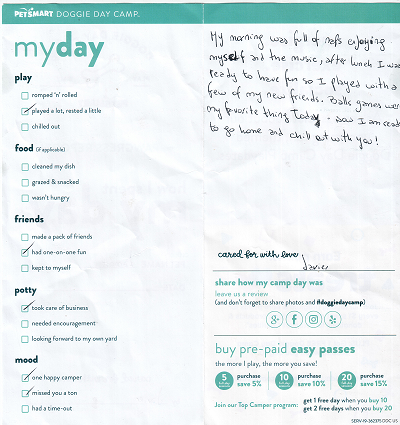 PETSMART DOGGIE DAY CAMP
myday
play
romped 'n' rolled
played a lot, rested a little
chilled out
food (if applicable)
cleaned my dish
grazed & snacked
wasn't hungry
friends
made a pack of friends
had one-on-one fun
kept to myself
potty
took care of business
needed encouragement
looking forward to my own yard
mood
one happy camper
missed you a ton
had a time-out
My morning was full of naps enjoying
myself and the music, after lunch I was
ready to have fun so I played with a
few of my new friends. Balls games were
my favorite thing Today - now I am ready
to go home and chill out with you!
cared for with love
share how my camp day was
leave us a review
(and don't forget to share photos and #doggiedaycamp)
buy pre-paid easy passes
the more I play, the more you save!
5 purchase
save 5%
10 purchase
save 10%
20 purchase
save 15%
Join our Top Camper program:
get 1 free day when you buy 10
get 2 free days when you buy 20